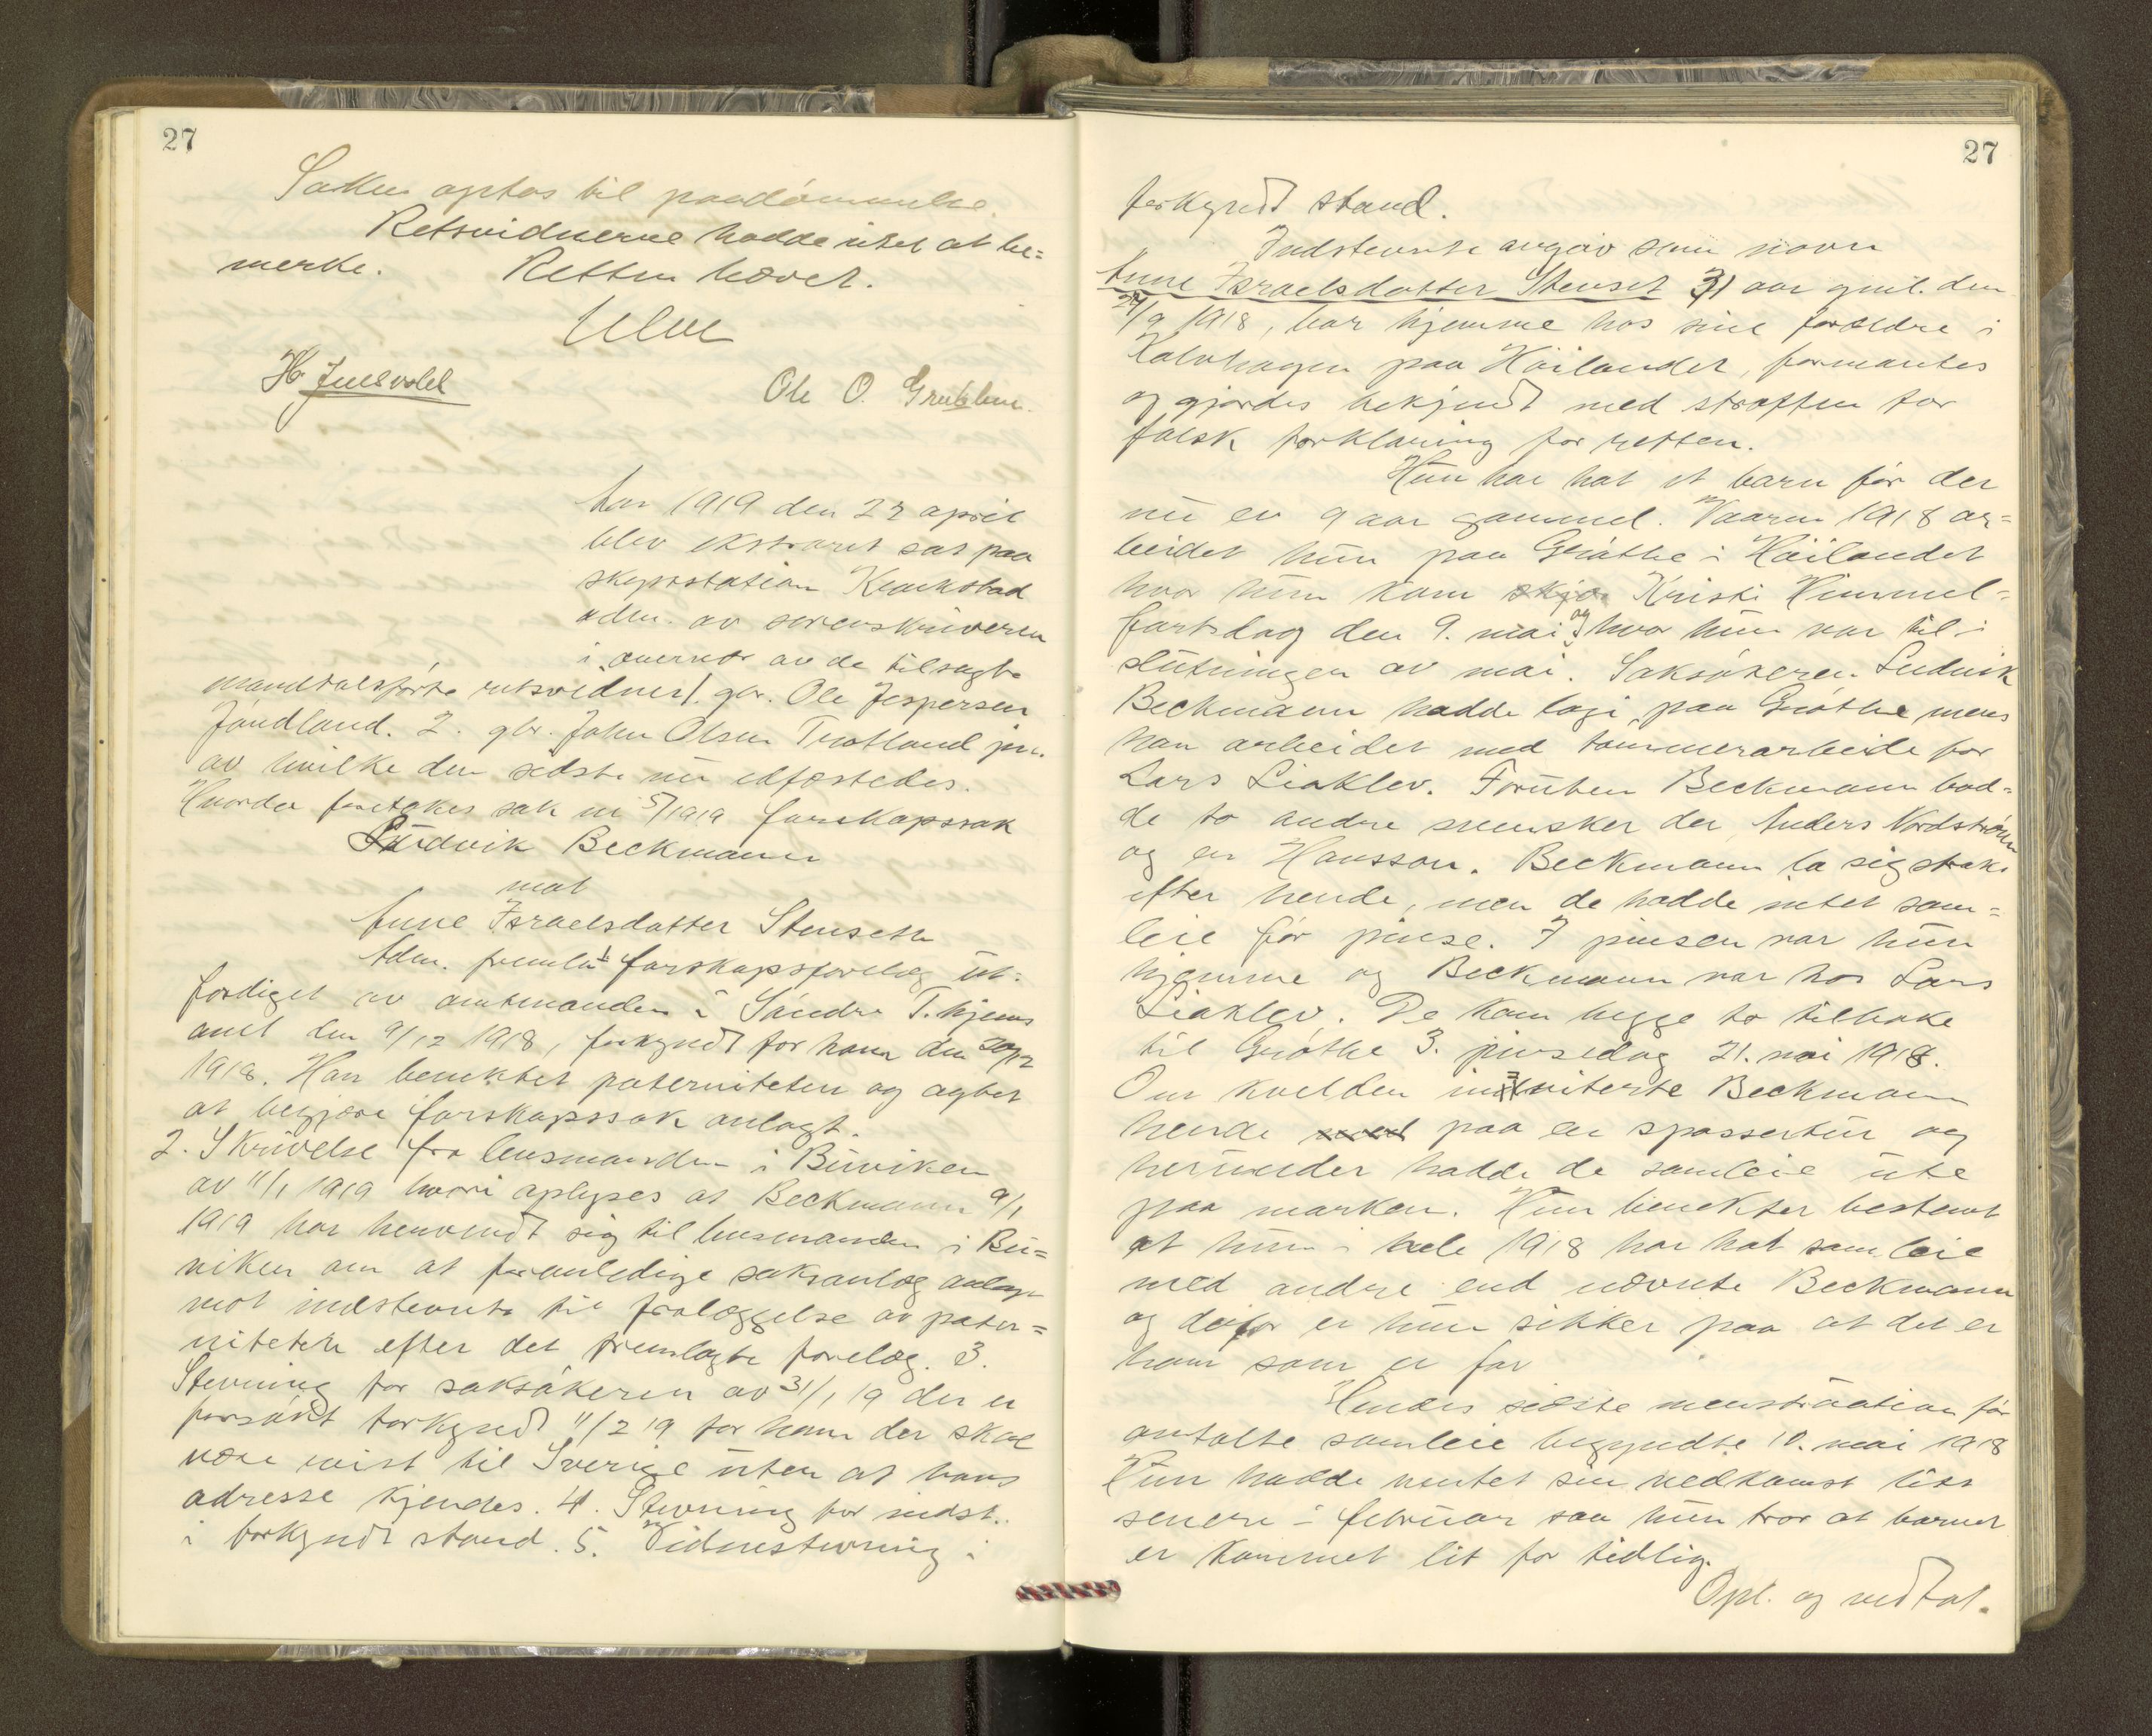 27
Saken optas til paadömmelse.
Retsvidnerne hadde intet at be=
merke. Retten hævet.
Ole O.
Aar 1919 den 22 april
blev ekstraret sat paa
skydsstation
adm. av sorenskriveren
i overvær av de tilsagte
mandtalsförte retsvidner 1. gbr. Ole Jespersen
2. gbr. John Olsen jr.
av hvilke den sidste nu edfæstedes.
Hvorda foretokes sak nr 5/1919 farskapssak
Ludvik Beckmann
mot
Anne Israelsdatter Stenseth
Adm. fremla 1 farskapsforelæg ut=
ferdiget av amtmanden i Söndre T.hjems
amt den 9/12 1918, forkyndt for ham den 20/12
1918. Han benektet paterniteten og agtet
at begjære farskapssak anlagt.
2. Skrivelse fra lensmanden i Buviken
av 11/1 1919 hvori oplyses at Beckmann 9/1
1919 har henvendt sig til lensmanden i Bu=
viken om at foranledige saksanlæg
mot indstevnte til fralæggelse av pater=
niteten efter det fremlagte forelæg. 3.
Stevning for saksökeren av 31/1 19 der er
forsökt forkyndt 11/2 19 for ham der skal
være reist til Sverige uten at hans
adresse kjendes. 4. Stevning for indst.
i forkyndt stand. 5. Vidnestevning i
27
forkyndt stand.
Indstevnte avgav som navn
Anne Israelsdatter Stenset 31 aar gml. den
24/9 1918, bor hjemme hos sine forældre i
paa Höilandet, formantes
og gjordes bekjendt med straffen for
falsk forklaring for retten.
Hun har hat et barn för der
nu er 9 aar gammel. Vaaren 1918 ar=
beidet hun paa Gröthe i Höilandet
hvor hun kom Kristi Himmel=
fartsdag den 9. mai og hvor hun var til i
slutningen av mai. Saksökeren Ludvik
Beckmann hadde logi paa Gröthe mens
han arbeidet med tömmerarbeide for
Lars Liaklev. Foruten Beckmann bod=
de to andre svensker der Anders Nordström
og en Hansson. Beckmann la sig straks
efter hende, men de hadde intet sam=
leie för pinse. I pinsen var hun
hjemme og Beckmann var hos Lars
Liaklev. De kom begge to tilbake
til Gröthe 3. pinsedag 21. mai 1918.
Om kvelden inviterte Beckmann
hende paa en spassertur og
herunder hadde de samleie ute
paa marken. Hun benekter bestemt
at hun i hele 1918 har hat samleie
med andre end nævnte Beckmann
og derfor er hun sikker paa at det er
ham som er far
Hendes sidste menstruation för
omtalte samleie begyndte 10. mai 1918
Hun hadde ventet sin nedkomst litt
senere i februar saa hun tror at barnet
er kommet lit for tidlig.
Opl. og vedtat.